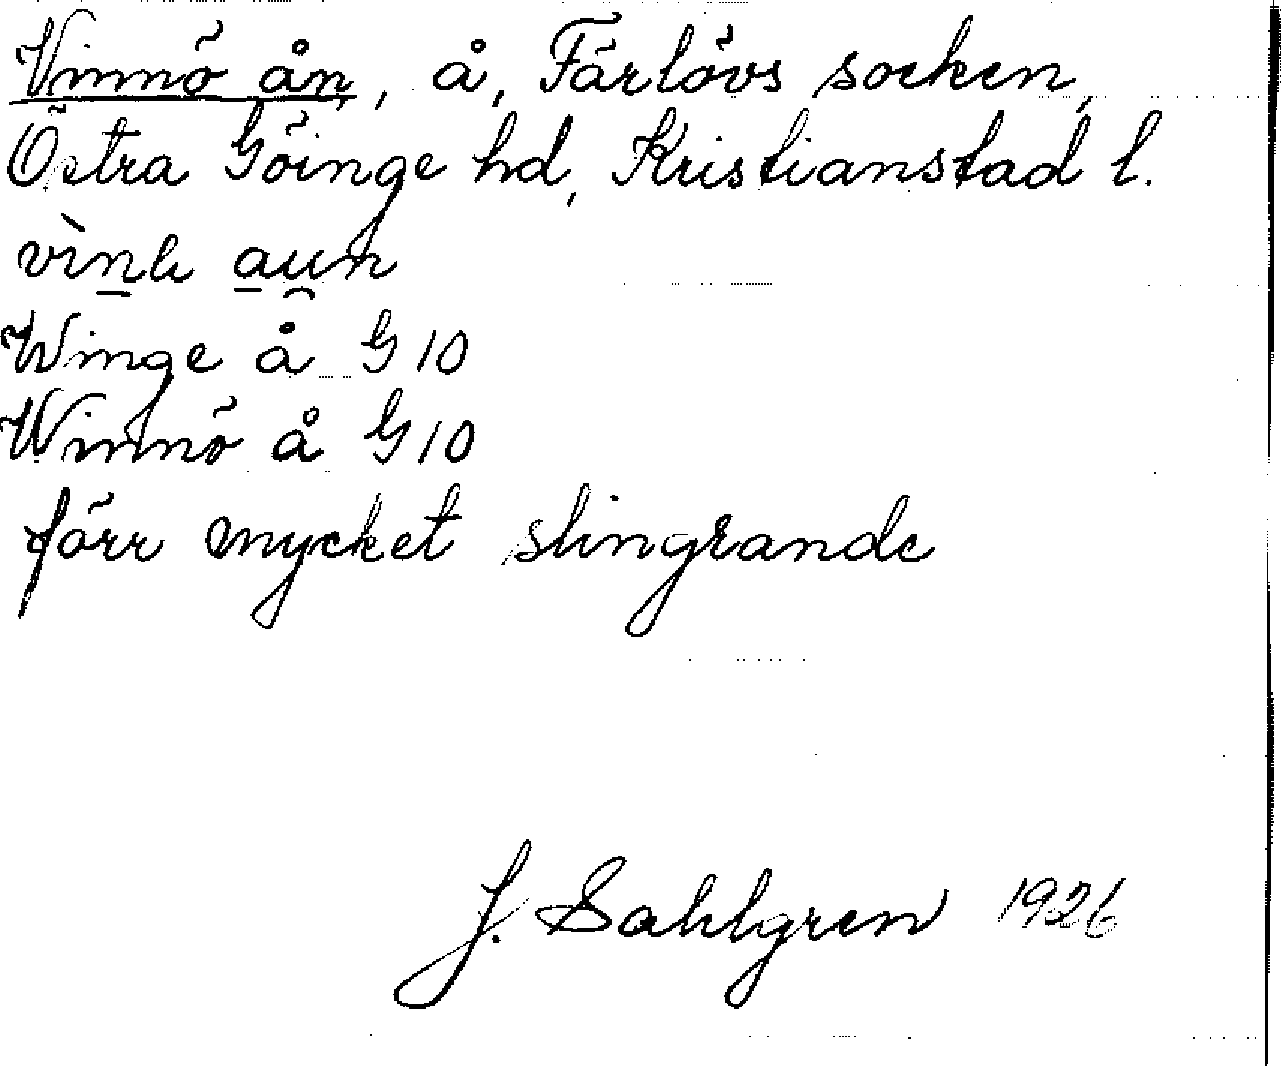 Vinnö ån, å, Färlövs socken,
Östra Göinge hd, Kristianstad l.
Winge å G 10
Winnö å G 10
förr mycket slingrande
J. Sahlgren 1926